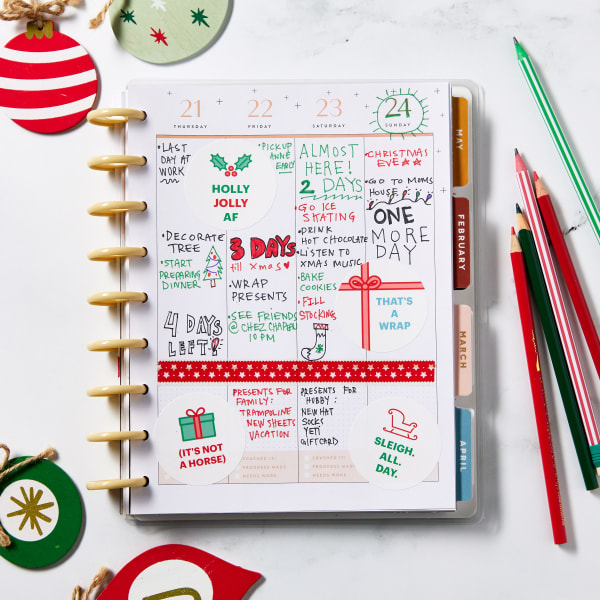 21
THURSDAY
22
FRIDAY
23
SATURDAY
24
SUNDAY
•LAST
DAY AT
WORK
HOLLY
JOLLY
AF
•DECORATE
TREE
•START
PREPARING
DINNER
4 DAYS
LEFT!
•PICKUP
ANNE
EARLY
3 DAYS
till xmas
•WRAP
PRESENTS
•SEE FRIENDS
@ CHEZ CHAPEAU
10 PM
ALMOST
HERE!
2 DAYS
•GO ICE
SKATING
•DRINK
HOT CHOCOLATE
•LISTEN TO
XMAS MUSIC
•BAKE
COOKIES
•FILL
STOCKING
•CHRISTMAS
EVE
•GO TO MOMS
HOUSE
ONE
MORE
DAY
THAT'S
A WRAP
(IT'S NOT
A HORSE)
PRESENTS FOR
FAMILY:
TRAMPOLINE
NEW SHEETS
VACATION
PRESENTS FOR
HUBBY:
NEW HAT
SOCKS
YETI
GIFTCARD
SLEIGH.
ALL.
DAY.
PROGRESS MADE
NEEDS WORK
PROGRESS MADE
NEEDS WORK
MAY
FEBRUARY
MARCH
APRIL